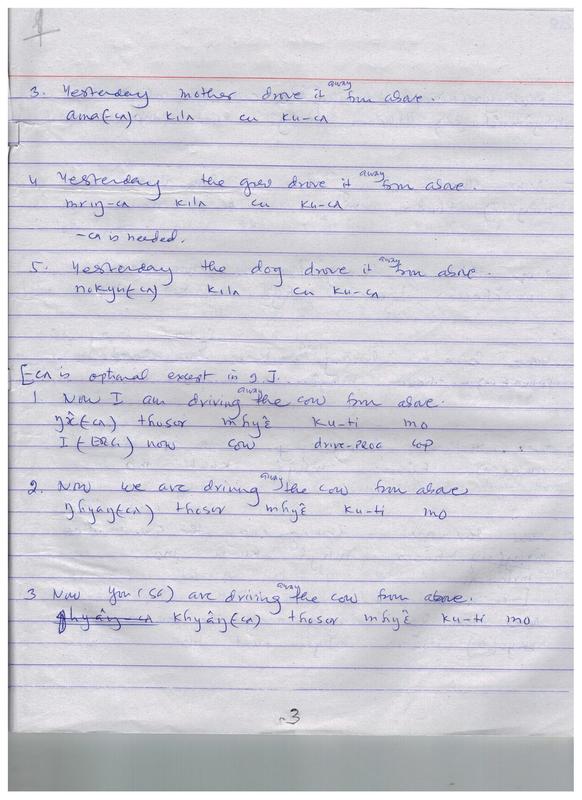 3. Yesterday mother drove it away from above.
ama(-cʌ) kilʌ cu ku-cʌ
4 Yesterday the grou drove it away from above.
mriŋ-cʌ kilʌ cu ku-cʌ
-cʌ is needed.
5. Yesterday the dog drove it away from above.
nokyu(-cʌ) kilʌ cu ku-cʌ
[-cʌ is optional except in 9 J.
1. Now I am driving away the cow from above.
ŋʌ̂(-cʌ) thosor mhyɛ̂ ku-ti mo
I (-ERG.) now cow drive-PROG COP
2. Now we are driving away the cow from above
ŋhyaŋ(-cʌ) thosor mhyɛ̂ ku-ti mo
3 Now you (SG) are driving away the cow from above.
khyâŋ(-cʌ) thosor mhyɛ̂ ku-ti mo
3